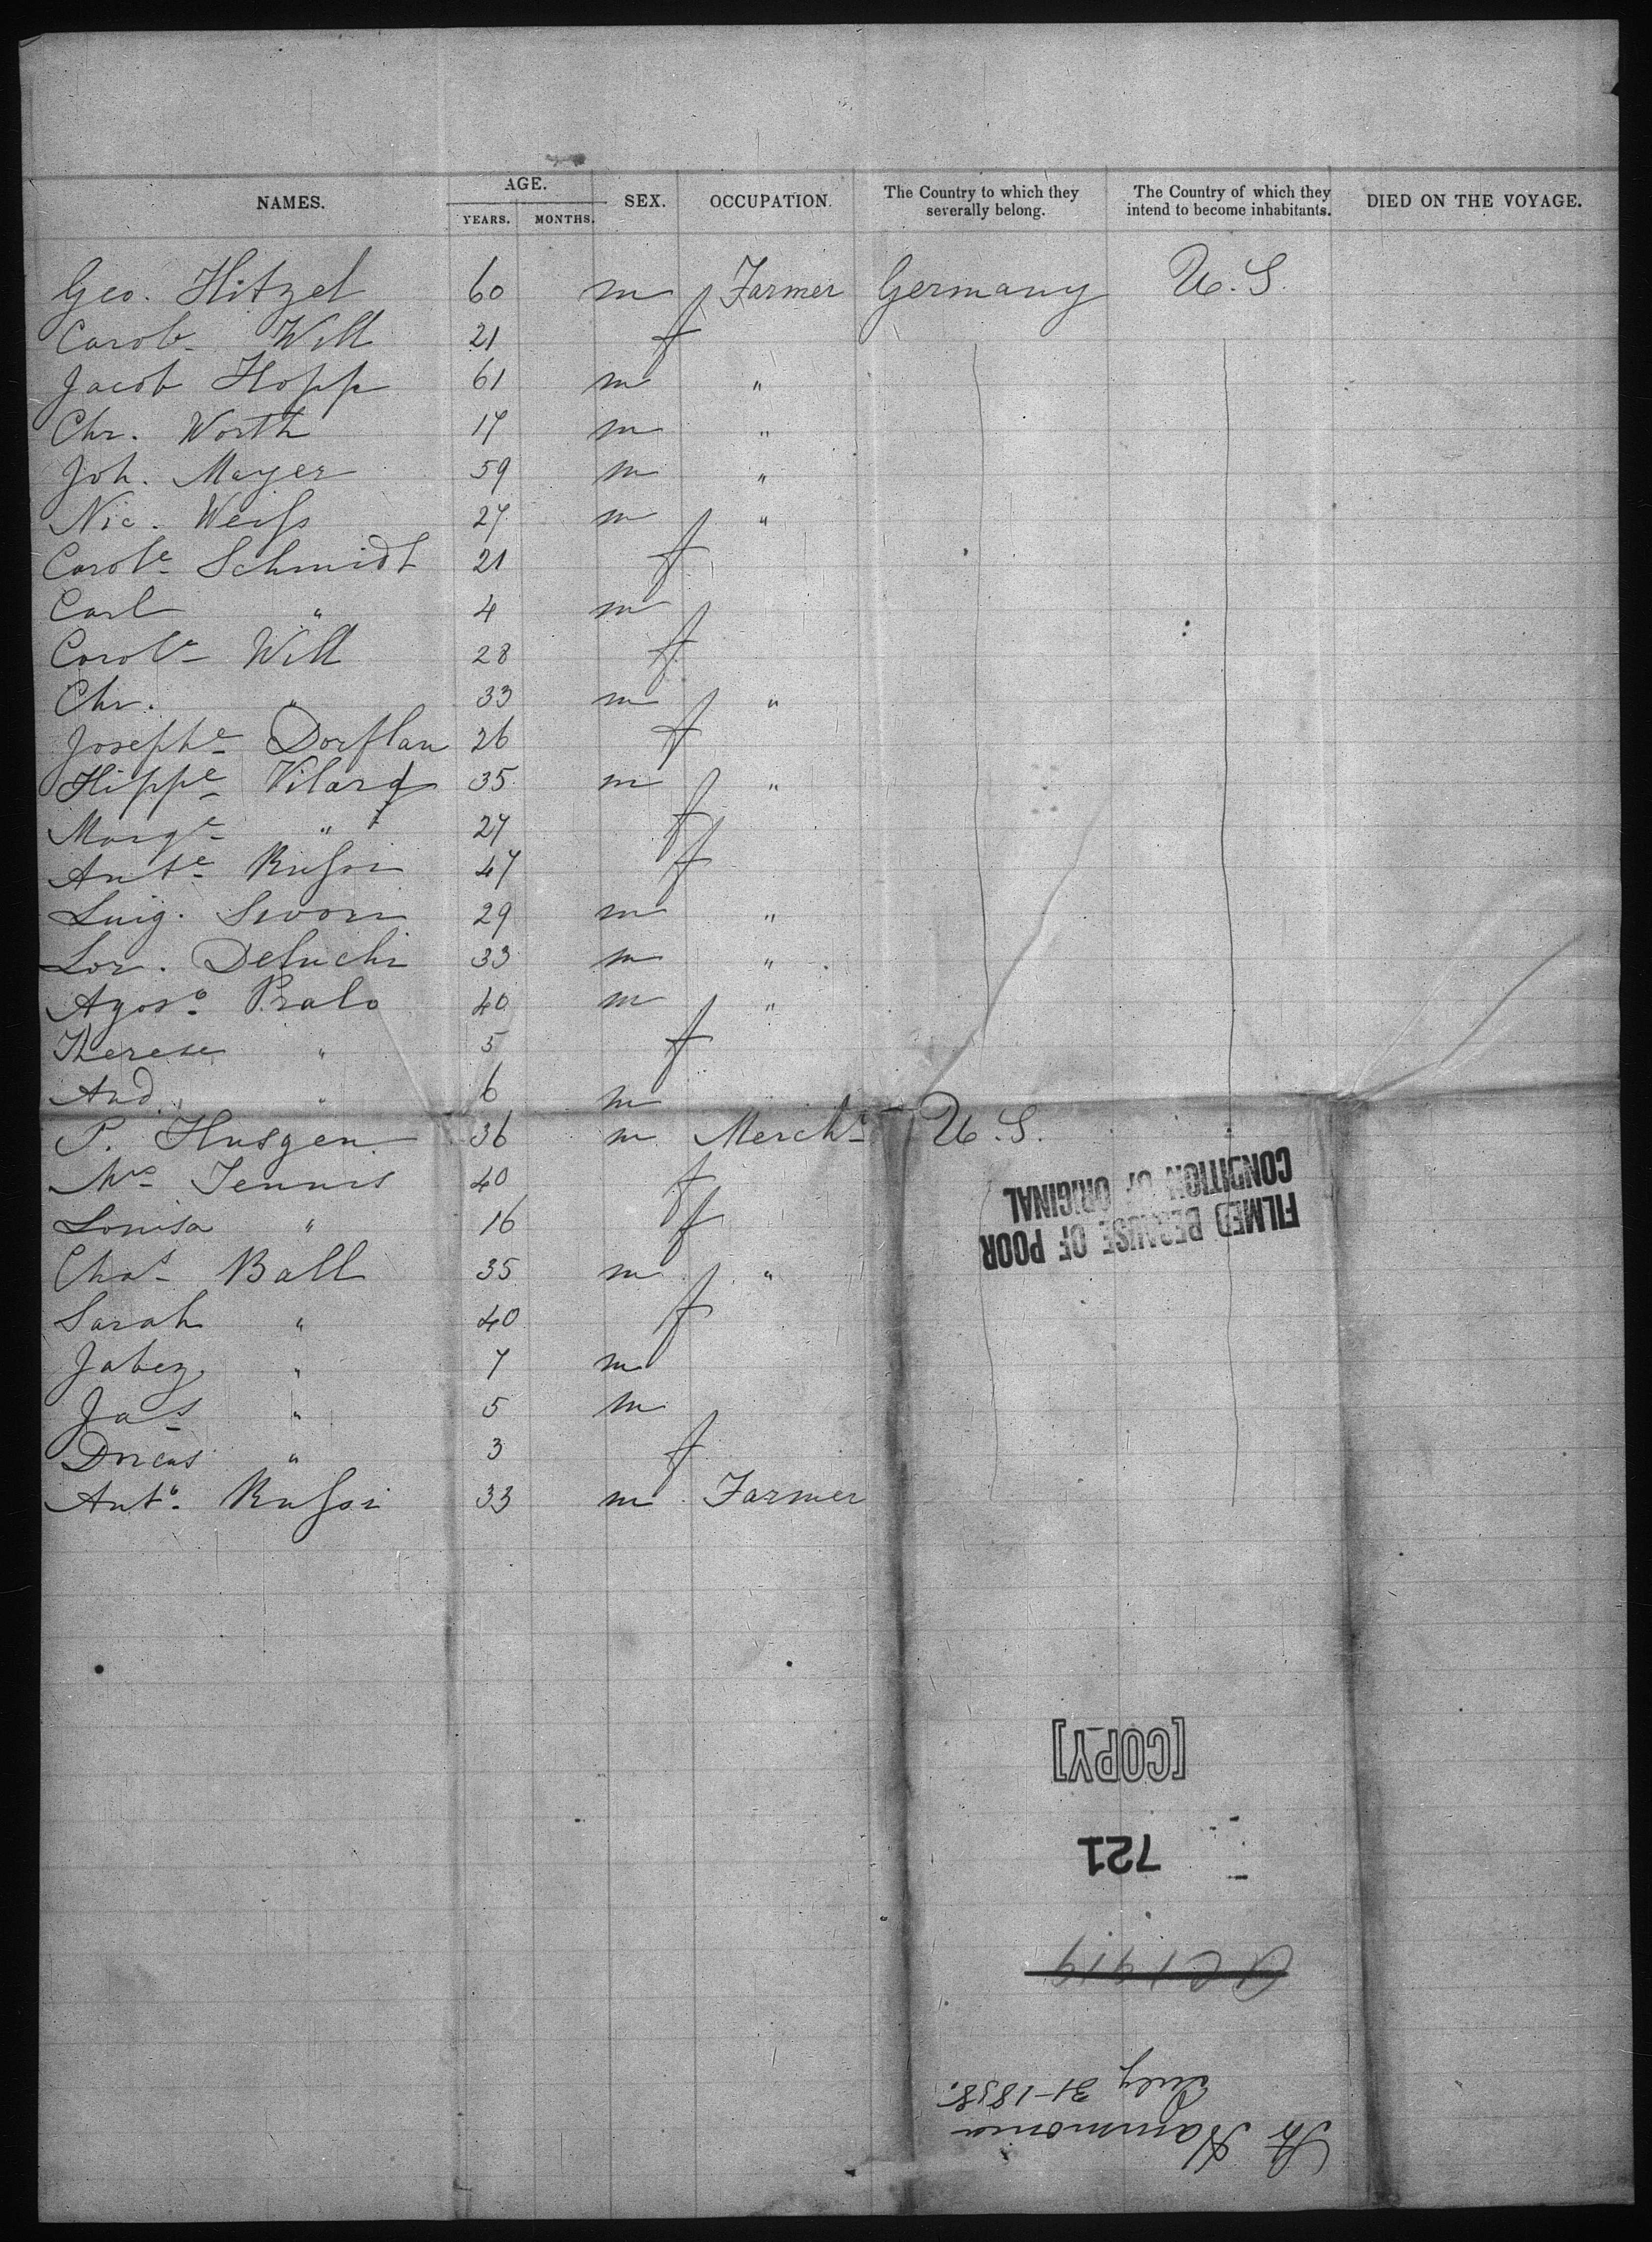 NAMES. AGE. YEARS. MONTHS. SEX. OCCUPATION. The Country to which they severally belong. The Country of which they intend to become inhabitants. DIED ON THE VOYAGE.
Geo. Hitzel 60 m Farmer Germany U.S.
Carole Will 21 f
Jacob Hopp 61 m "
Chr. Worth 17 m "
Joh. Mayer 59 m "
Nic. Weiss 27 m "
Carole Schmidt 21 f
Carl " 4 m
Carole Will 28 f
Chr. " 33 m "
Josephe Dorflan 26 f
Hippe Vilard 35 m "
Marge " 27 f
Ante Russi 47 f
Luig. 29 m "
Lor. Deluchi 33 m "
Agoso Pralo 40 m "
Therese " 5 f
And. " 6 m
P. Husgen 36 m Mercht U.S.
Mrs Tennis 40 f
Louisa " 16 f
Chas Ball 35 m "
Sarah " 40 f
Jabez " 7 m
Jas " 5 m
Dorcas " 3 f
Anto Russi 33 m Farmer
FILMED BECAUSE OF POOR
CONDITION OF ORIGINAL
[COPY]
721
Hammonia
July 31-1858.